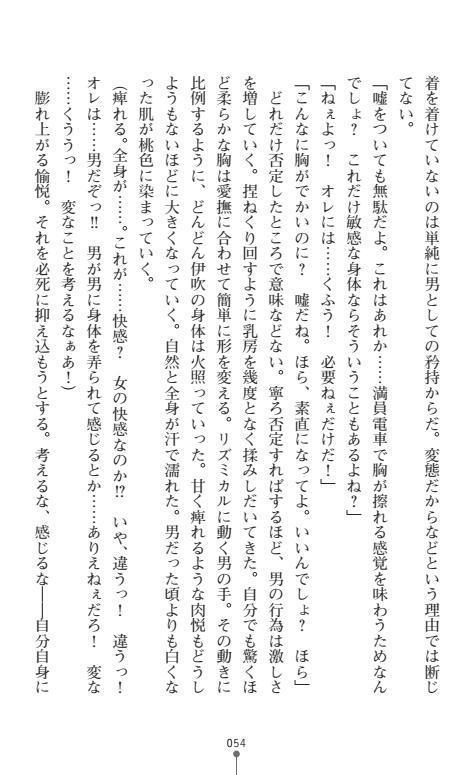 着を着けていないのは単純に男としての矜持からだ。変態だからなどという理由では断じ
てない。
「嘘をついても無駄だよ。これはあれか……満員電車で胸が擦れる感覚を味わうためなん
でしょ？　これだけ敏感な身体ならそういうこともあるよね？」
「ねぇよっ！　オレには……くふう！　必要ねぇだけだ！」
「こんなに胸がでかいのに？　嘘だね。ほら、素直になってよ。いいんでしょ？　ほら」
　どれだけ否定したところで意味などない。寧ろ否定すればするほど、男の行為は激しさ
を増していく。捏ねくり回すように乳房を幾度となく揉みしだいてきた。自分でも驚くほ
ど柔らかな胸は愛撫に合わせて簡単に形を変える。リズミカルに動く男の手。その動きに
比例するように、どんどん伊吹の身体は火照っていった。甘く痺れるような肉悦もどうし
ようもないほどに大きくなっていく。自然と全身が汗で濡れた。男だった頃よりも白くな
った肌が桃色に染まっていく。
（痺れる。全身が……。これが……快感？　女の快感なのか⁉　いや、違うっ！　違うっ！
オレは……男だぞっ‼　男が男に身体を弄られて感じるとか……ありえねぇだろ！　変な
……くううっ！　変なことを考えるなぁあ！）
　膨れ上がる愉悦。それを必死に抑え込もうとする。考えるな、感じるな――自分自身に
054